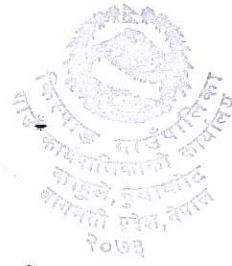 किस्पाङ गाउँपालिका
गाउँ कार्यपालिकाको कार्यालय
नुवाकोट
बागमती प्रदेश, नेपाल
२०७३